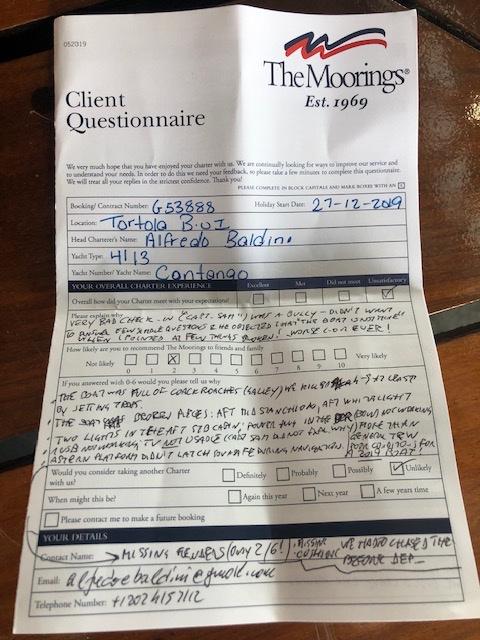 052019
The Moorings®
Est. 1969
Client
Questionnaire
We very much hope that you have enjoyed your charter with us. We are continually looking for ways to improve our service and
to understand your needs. In order to do this we need your feedback, so please take a few minutes to complete this questionnaire.
We will treat all your replies in the strictest confidence. Thank you!
PLEASE COMPLETE IN BLOCK CAPITALS AND MARK BOXES WITH AN X
Booking/ Contract Number: G53888 Holiday Start Date: 27-12-2019
Location: Tortola B.U.I
Head Charterer's Name: Alfredo Baldini
Yacht Type: 4113
Yacht Number/ Yacht Name: Contango
YOUR OVERALL CHARTER EXPERIENCE Excellent Met Did not meet Unsatisfactory
Overall how did your Charter meet with your expectations?
Please explain why
VERY BAD CHECK-IN (CAPT. SAM") WAS A BULLY - DIDN'T WANT
TO FEW SIMPLE QUESTIONS HE OBJECTED THAT THE BOAT WAS "FINE"
WHEN I POINTED AT FEW THINGS BROKEN! WORSE EVER!
How likely are you to recommend The Moorings to friends and family
Not likely 0 1 2 3 4 5 6 7 8 9 10 Very likely
If you answered with 0-6 would you please tell us why
- THE BOAT WAS FULL OF COACKROACHES (GALLEY) WE KILLED AT LEAST
BY SETING TRAPS.
- THE BOAT BROKEN PIECES: AFT OLD STANCHION, AFT WHITE LIGHT
TWO LIGHTS IN THE AFT STB CABIN, POWER IN THE (BOW) NOT WORKING
1 USB NOT WORKING TV NOT USABLE (CAPT SAM DID NOT WHY) MORE THAN
PLATFORM DIDN'T LATCH DURING NAVIGATION GENERAL
POOR CONDITIONS FOR
A 2019 BOAT!
Would you consider taking another Charter
with us? Definitely Probably Possibly Unlikely
When might this be? Again this year Next year A few years time
Please contact me to make a future booking
YOUR DETAILS
Contact Name: MISSING FENDERS (ONLY 2/6!). MISSING CUSHION WE HAD TO THE
BEFORE DEP
Email: alfredoebaldini@gmail.com
Telephone Number: +12024157112